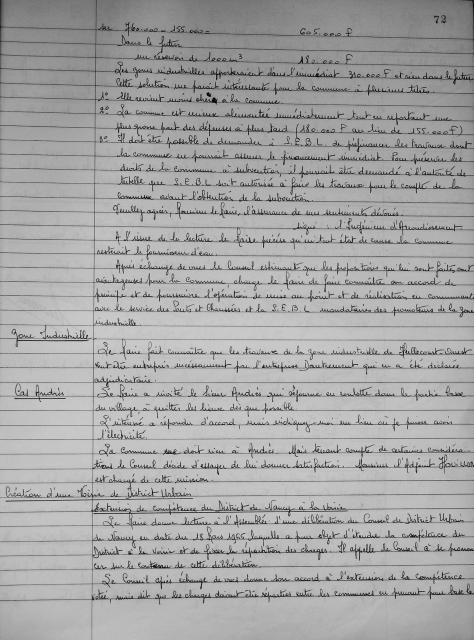 72
sur 760.000 - 155.000 = 605.000 F
Dans le futur
un réservoir de 1000 m³ 180.000 F
Les zones industrielles apporteraient dans l'immédiat 310.000 F et rien dans le futur
Cette solution me paraît intéressante pour la commune à plusieurs titres
1° Elle revient moins cher à la commune.
2° La commune est mieux alimentée immédiatement tout en reportant une
plus grosse part des dépenses à plus tard (180.000 F au lieu de 155.000 F)
3° Il doit être possible de demander à S.E.B.L. de préfinancer les travaux dont
la commune ne pourrait assurer le financement immédiat. Pour préserver les
droits de la commune à subvention, il pourrait être demandé à l'autorité de
tutelle que S.E.B.L. soit autorisée à faire les travaux pour le compte de la
commune avant l'obtention de la subvention.
Veuillez agréer, Monsieur le Maire, l'assurance de mes sentiments dévoués.
Signé : l'Ingénieur d'Arrondissement
A l'issue de la lecture le Maire précise qu'en tout état de cause la commune
resterait le fournisseur d'eau.
Après échange de vues le Conseil estimant que les propositions qui lui sont faites sont
avantageuses pour la commune charge le Maire de faire connaître son accord de
principe et de poursuivre l'opération de mise au point et de réalisation en commun
avec le service des Ponts et Chaussées et la S.E.B.L. mandataires des promoteurs de la zone
industrielle.
Zone Industrielle
Le Maire fait connaître que les travaux de la zone industrielle de Heillecourt-Ouest
vont être entrepris incessamment par l'entreprise qui en a été déclarée
adjudicataire.
Cas Andrés
Le Maire a invité le Sieur Andrés qui séjourne en roulotte dans la partie basse
du village à quitter les lieux dès que possible.
L'intéressé a répondu d'accord, mais indiquez moi un lieu où je puisse avoir
l'électricité.
La commune ne doit rien à Andrés. Mais tenant compte de certaines considéra-
tions le Conseil décide d'essayer de lui donner satisfaction. Monsieur l'Adjoint
est chargé de cette mission.
Création d'une Voirie de District Urbain
Extension de compétence du District de Nancy à la Voirie
Le Maire donne lecture à l'Assemblée d'une délibération du Conseil de District Urbain
de Nancy en date du 18 Mars 1965 laquelle a pour objet d'étendre la compétence du
District à la voirie et de fixer la répartition des charges. Il appelle le Conseil à se pronon-
cer sur le contenu de cette délibération.
Le Conseil après échange de vues donne son accord à l'extension de la compétence
, mais dit que les charges doivent être réparties entre les communes en prenant pour base le